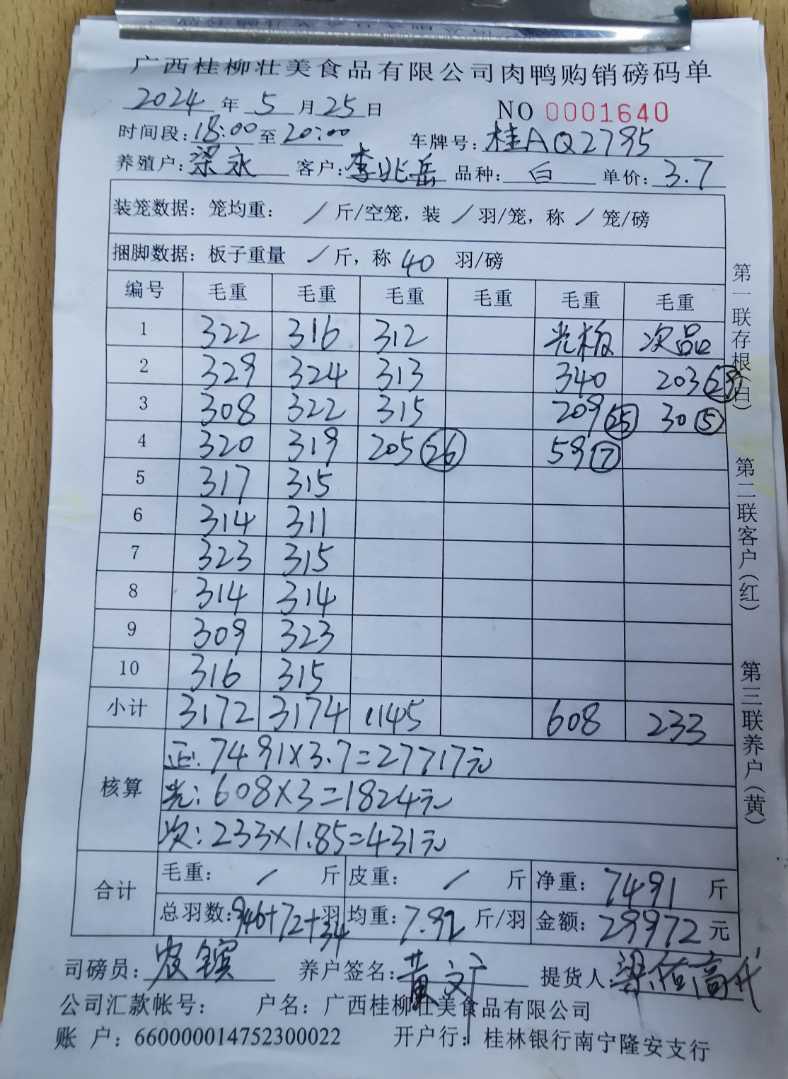 广西桂柳壮美食品有限公司肉鸭购销磅码单
2024 年 5 月 25 日 NO 0001640
时间段: 18:00 至 20:00 车牌号: 桂AQ2795
养殖户: 梁永 客户: 李兆岳 品种: 白 单价: 3.7
装笼数据: 笼均重: / 斤/空笼, 装 / 羽/笼, 称 / 笼/磅
捆脚数据: 板子重量 / 斤, 称 40 羽/磅
编号 毛重 毛重 毛重 毛重 毛重 毛重
1 322 316 312 光板 次品
2 329 324 313 340 203
3 308 322 315 209 25 30 5
4 320 319 205 26 59 7
5 317 315
6 314 311
7 323 315
8 314 314
9 309 323
10 316 315
小计 3172 3174 1145 608 233
核算
正: 7491×3.7=27717元
光: 608×3=1824元
次: 233×1.85=431元
合计
毛重: / 斤 皮重: / 斤 净重: 7491 斤
总羽数: 946+72+34 羽 均重: 7.92 斤/羽 金额: 29972 元
司磅员: 养户签名: 黄 提货人 梁
公司汇款帐号: 户名: 广西桂柳壮美食品有限公司
账 户: 660000014752300022 开户行: 桂林银行南宁隆安支行
第一联存根(白) 第二联客户(红) 第三联养户(黄)